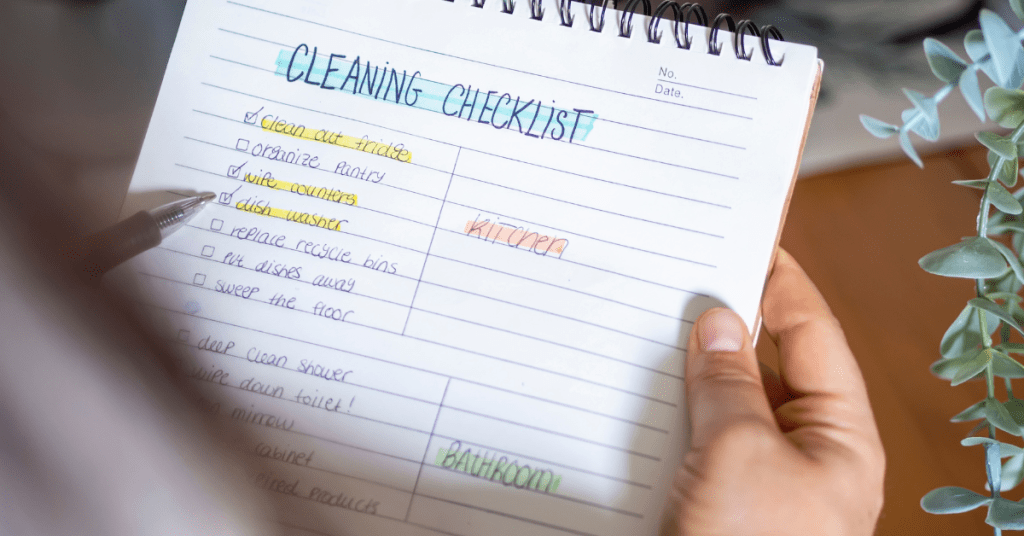 No.
Date.
CLEANING CHECKLIST
Clean out fridge
organize pantry
wipe counters
dish washer
replace recycle bins
Put dishes away
sweep the floor
Kircher
deep clean shower
wipe down toilet!
mirrow
cabinet
products
BATHROOM